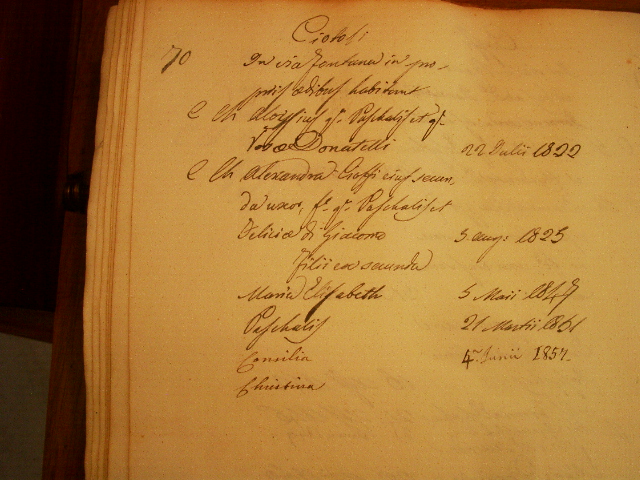 Ciotoli
70 In via Fontana in pro-
priis ædibus habitant
C Ch Aloissius qm. Paschalis et qm.
Rosæ Donatelli 22 Julii 1822
C Ch Alexandra Cioffi ejus secun,
da uxor, fa. qm. Paschalis et
Feliciæ di Giacomo 5 aug: 1825
Filii ex secunda
Maria Elisabeth 5 Maii 1847
Paschalis 21 Martii 1861
Consilia 4 Junii 1857
Christina